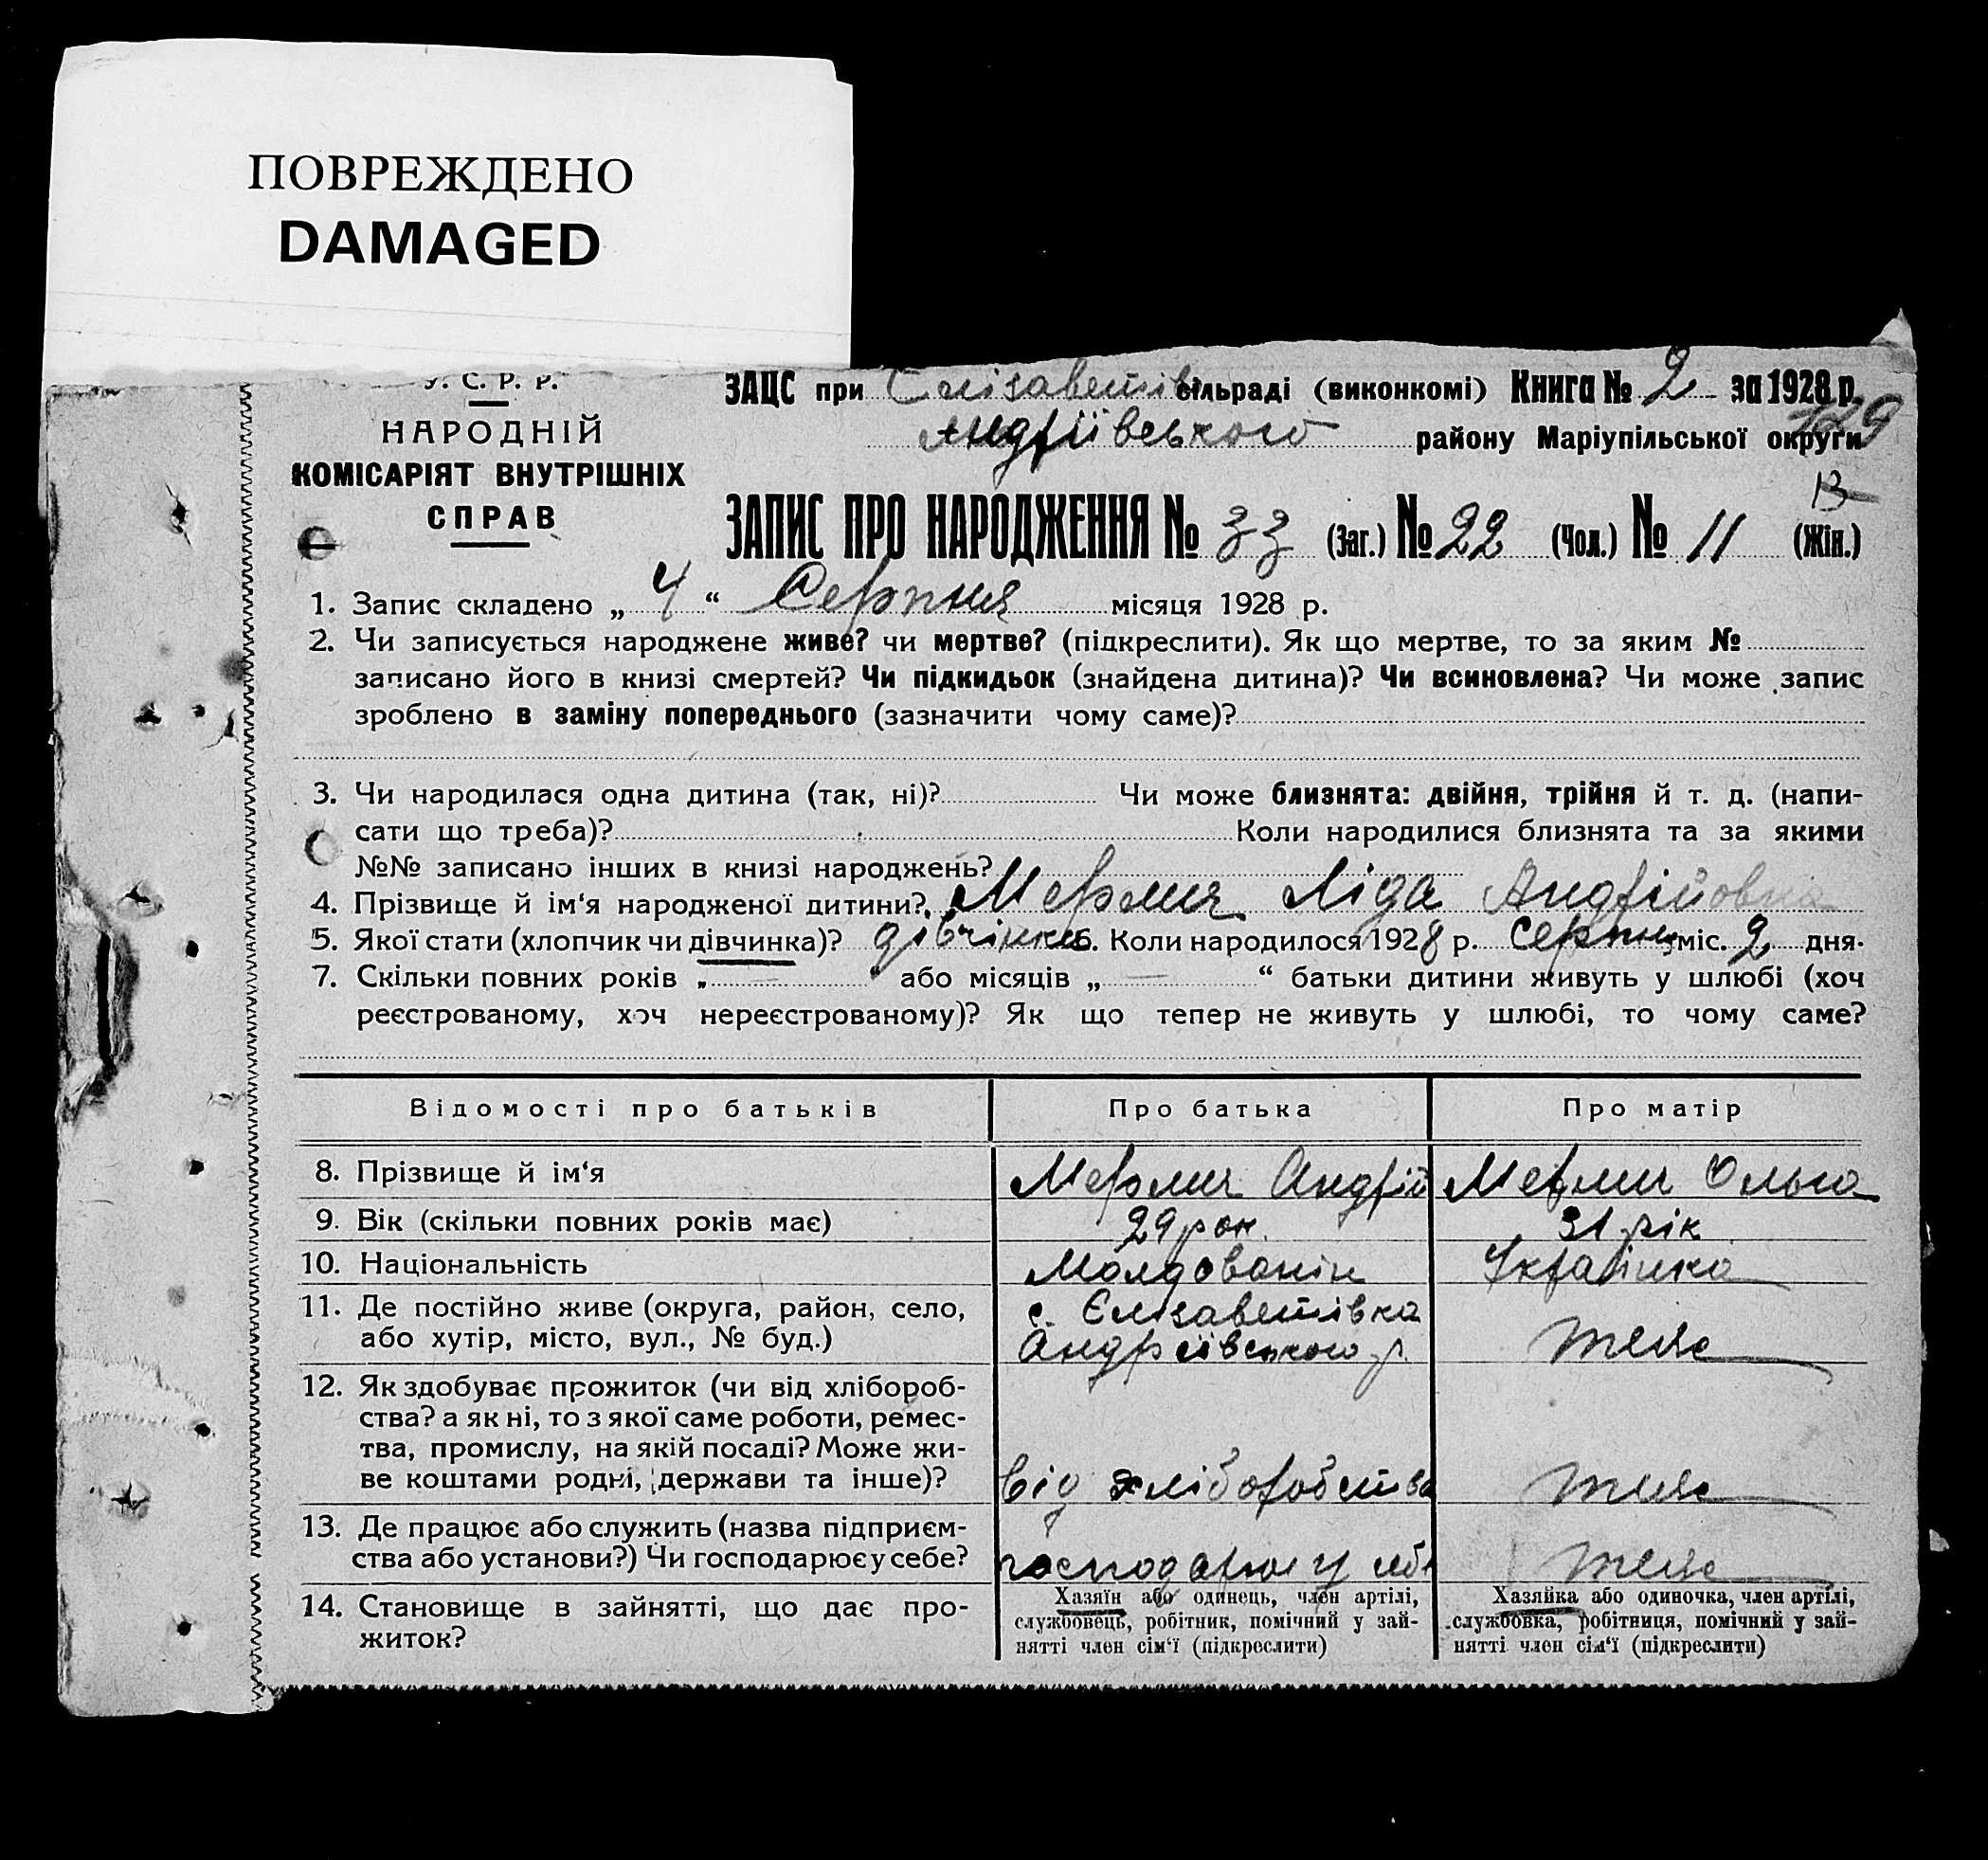 ПОВРЕЖДЕНО
DAMAGED
У. С. Р. Р.
НАРОДНІЙ
КОМІСАРІЯТ ВНУТРІШНІХ
СПРАВ
ЗАЦС при Єлізаветів сільраді (виконкомі) Книга № 2 за 1928 р.
129
Андріївського району Маріупільської округи
13
ЗАПИС ПРО НАРОДЖЕННЯ № 33 (Заг.) № 22 (Чол.) № 11 (Жін.)
1. Запис складено „ 4 “ Серпня місяця 1928 р.
2. Чи записується народжене живе? чи мертве? (підкреслити). Як що мертве, то за яким №
записано його в книзі смертей? Чи підкидьок (знайдена дитина)? Чи всиновлена? Чи може запис
зроблено в заміну попереднього (зазначити чому саме)?
3. Чи народилася одна дитина (так, ні)? Чи може близнята: двійня, трійня й т. д. (напи-
сати що треба)? Коли народилися близнята та за якими
№№ записано інших в книзі народжень?
4. Прізвище й ім‘я народженої дитини? Мерлич Ліда Андрійовна
5. Якої стати (хлопчик чи дівчинка)? дівчінка 6. Коли народилося 1928 р. Серпня міс. 2 дня.
7. Скільки повних років „ — “ або місяців „ — “ батьки дитини живуть у шлюбі (хоч
реєстрованому, хоч нереєстрованому)? Як що тепер не живуть у шлюбі, то чому саме?
Відомості про батьків Про батька Про матір
8. Прізвище й ім‘я Мерлич Андрій Мерлич Ольга
9. Вік (скільки повних років має) 29 рок. 31 рік
10. Національність Молдованін Українка
11. Де постійно живе (округа, район, село, с. Єлізаветівка
або хутір, місто, вул., № буд.) Андріївського р. теж
12. Як здобуває прожиток (чи від хлібороб-
ства? а як ні, то з якої саме роботи, ремес-
тва, промислу, на якій посаді? Може жи-
ве коштами родні, держави та інше)? від хліборобства теж
13. Де працює або служить (назва підприєм-
ства або установи?) Чи господарює у себе? господарює у себе теж
14. Становище в зайнятті, що дає про-
житок?
Хазяїн або одинець, член артілі,
службовець, робітник, помічний у зай-
нятті член сім‘ї (підкреслити)
Хазяйка або одиночка, член артілі,
службовка, робітниця, помічний у зай-
нятті член сім‘ї (підкреслити)